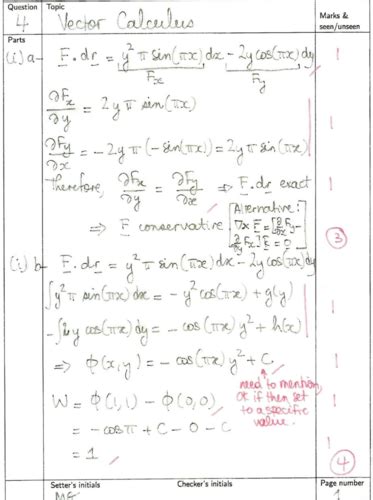 Question Topic Marks &
4 Vector Calculus seen/unseen
Parts
(i) a - F.dr = y²π sin(πx) dx - 2y cos(πx) dy 1
Fx Fy
∂Fx/∂y = 2yπ sin(πx)
1
∂Fy/∂x = -2yπ(-sin(πx)) = 2yπ sin(πx)
therefore, ∂Fx/∂y = ∂Fy/∂x ⇒ F.dr exact 1
⇒ F conservative. [Alternative:
∇x F = [∂/∂x Fy -
∂/∂y Fx] k = 0]
3
(i) b - F.dr = y²π sin(πx) dx - 2y cos(πx) dy
∫y²π sin(πx) dx = -y² cos(πx) + g(y) 1
-∫2y cos(πx) dy = -cos(πx) y² + h(x) 1
⇒ φ(x,y) = -cos(πx) y² + C. 1
need to mention,
OK if then set
to a specific
value.
W = φ(1,1) - φ(0,0)
= -cosπ + C - 0 - C 1
= 1
4
Setter's initials Checker's initials Page number
1